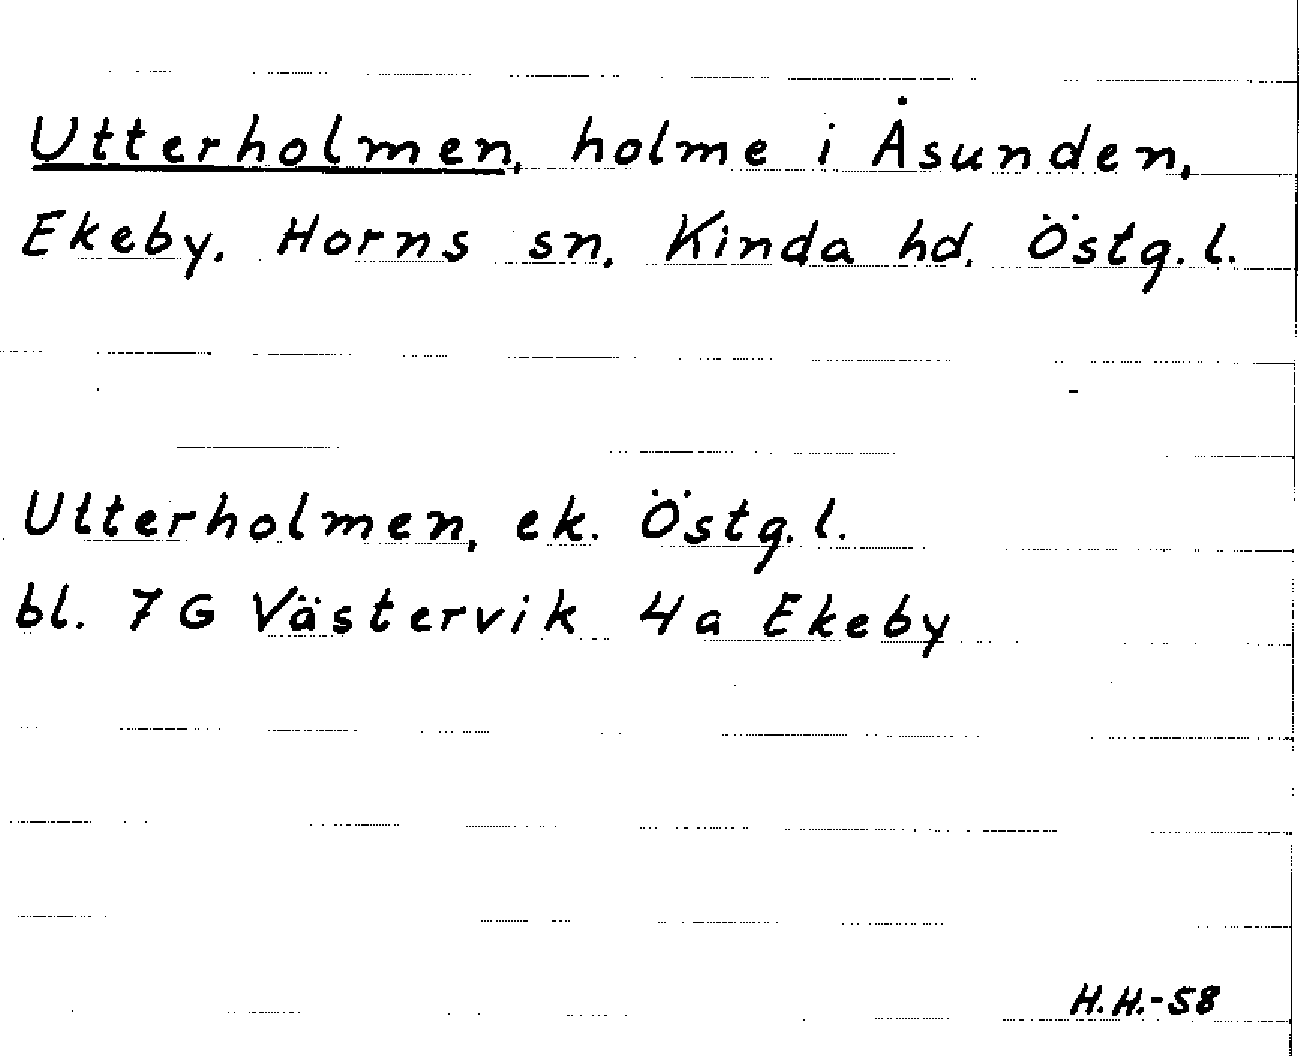 Utterholmen, holme i Åsunden,
Ekeby. Horns sn. Kinda hd. Östg. l.
Utterholmen, ek. Östg. l.
bl. 7 G Västervik 4a Ekeby
H.H.-58